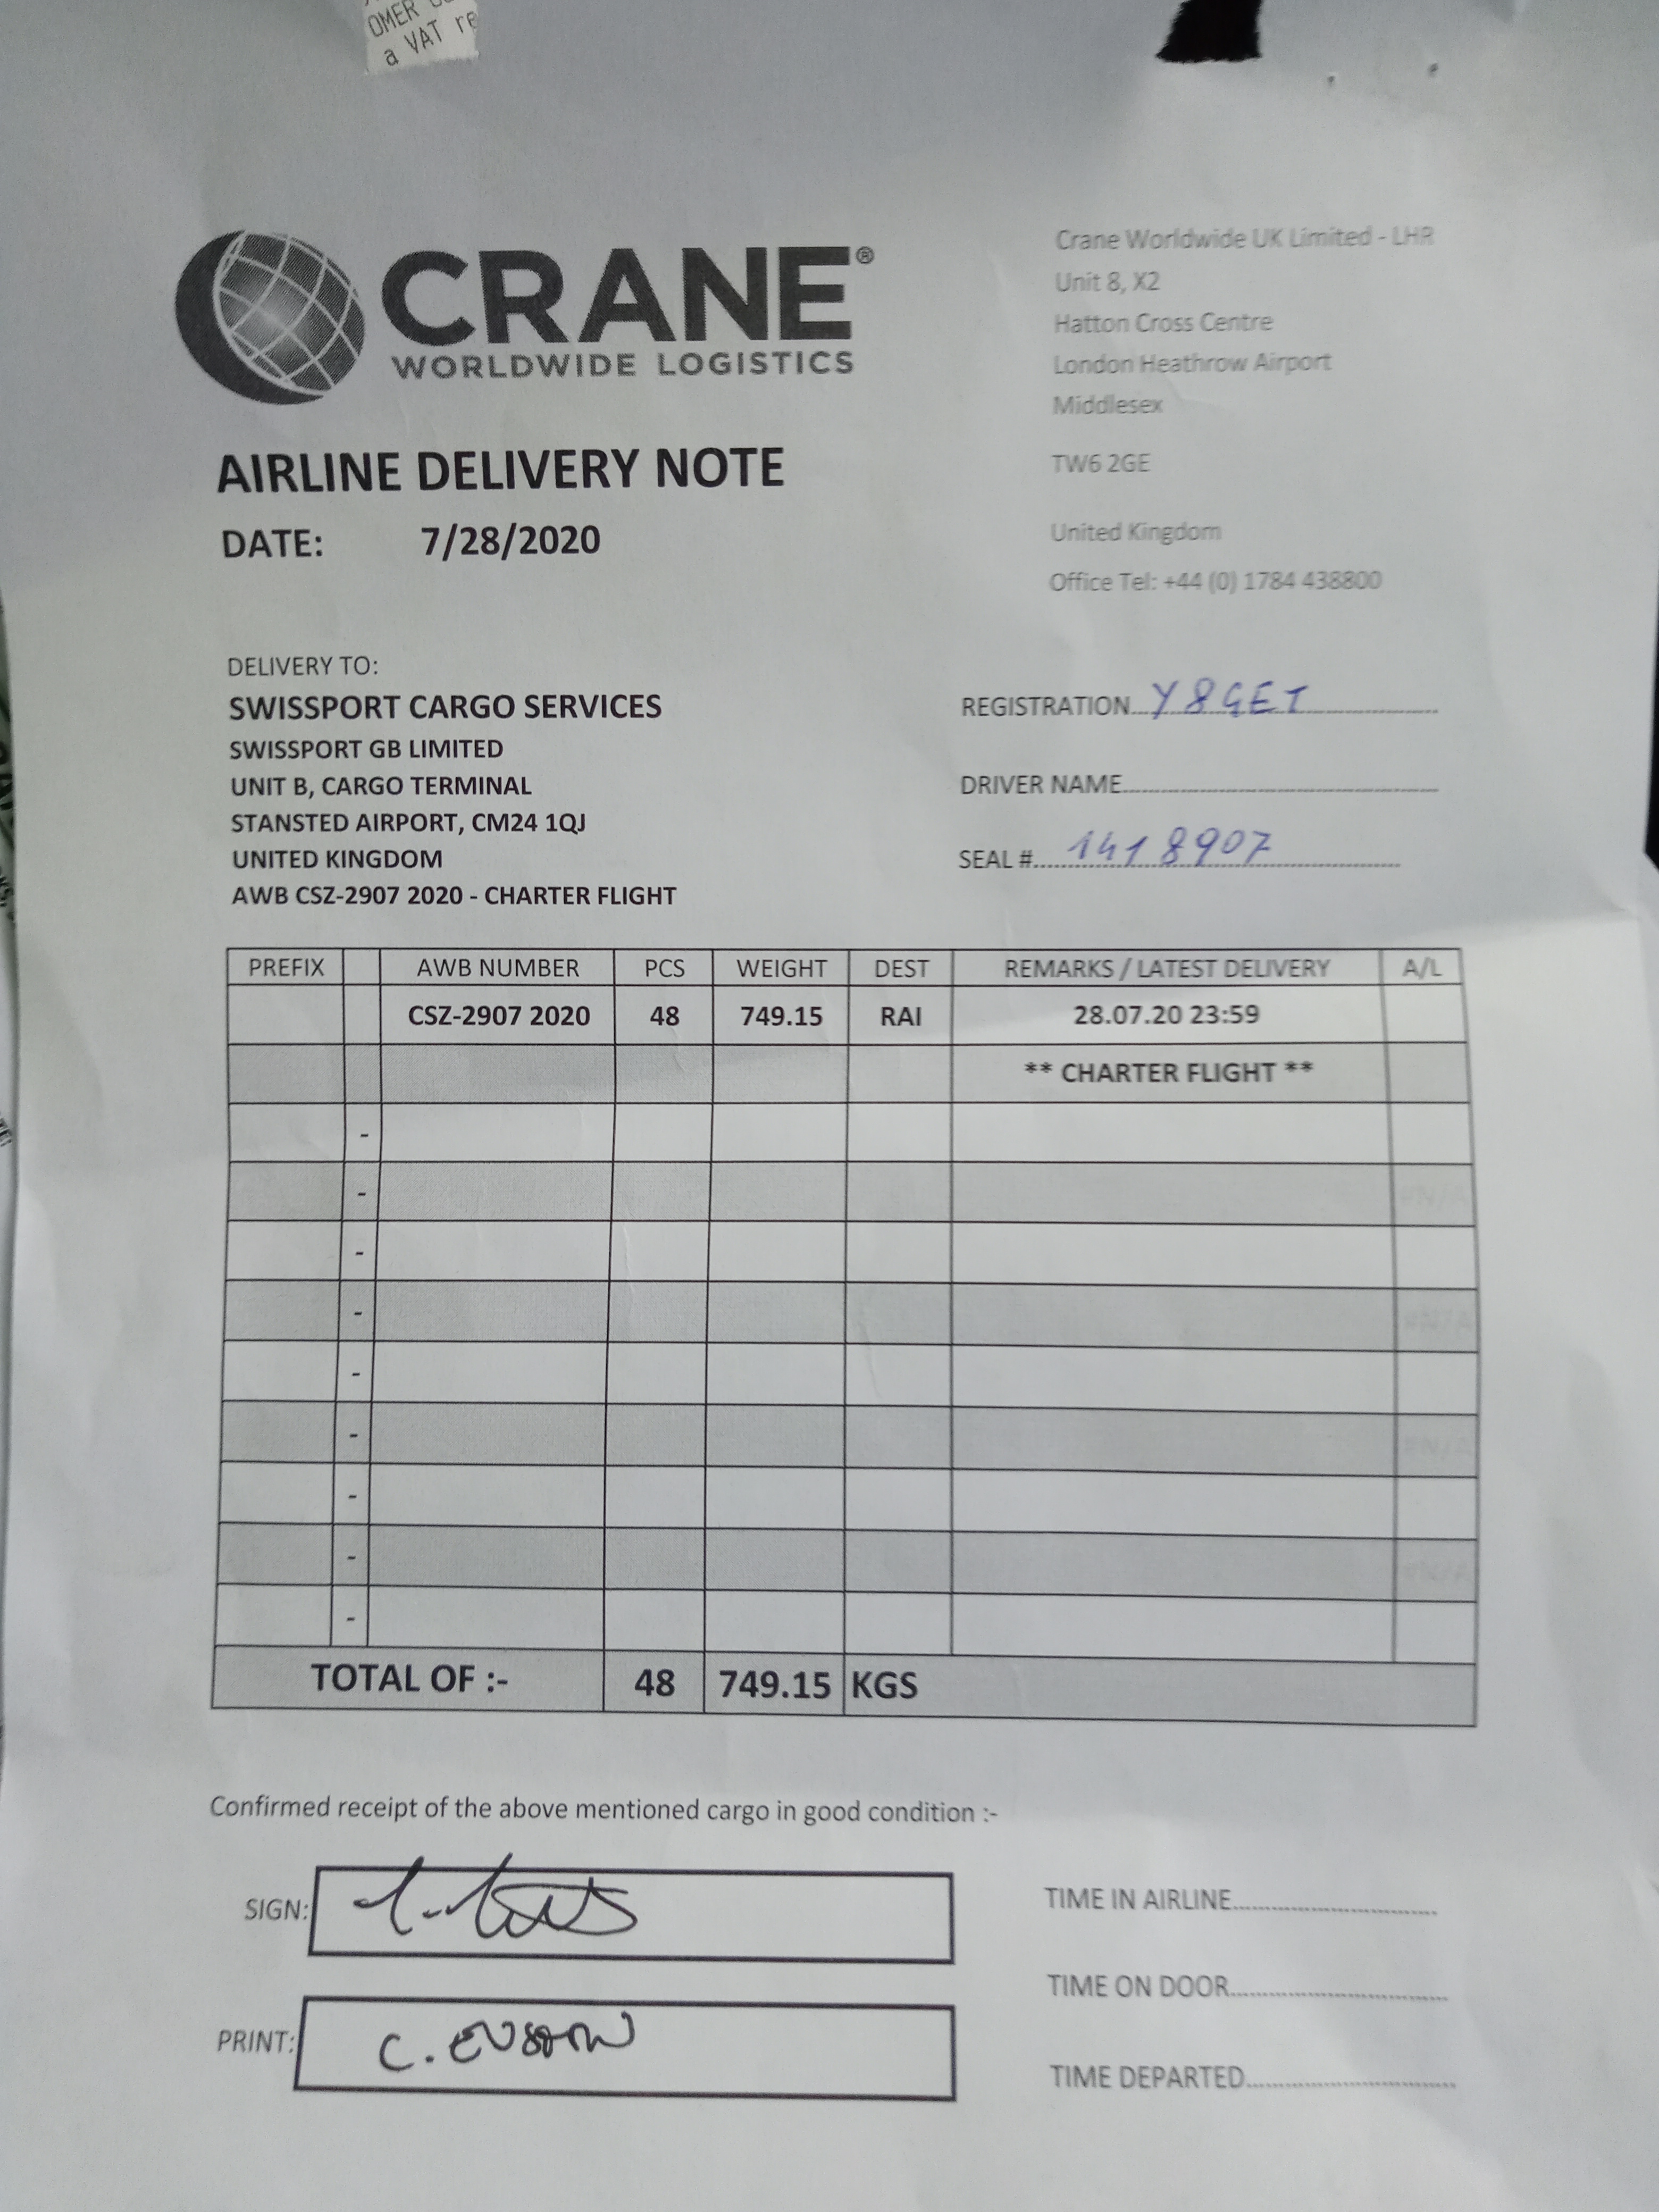 OMER
a VAT re
CRANE®
WORLDWIDE LOGISTICS
Crane Worldwide UK Limited - LHR
Unit 8, X2
Hatton Cross Centre
London Heathrow Airport
Middlesex
TW6 2GE
United Kingdom
Office Tel: +44 (0) 1784 438800
AIRLINE DELIVERY NOTE
DATE: 7/28/2020
DELIVERY TO:
SWISSPORT CARGO SERVICES
SWISSPORT GB LIMITED
UNIT B, CARGO TERMINAL
STANSTED AIRPORT, CM24 1QJ
UNITED KINGDOM
AWB CSZ-2907 2020 - CHARTER FLIGHT
REGISTRATION Y8GET
DRIVER NAME
SEAL # 1418907
PREFIX AWB NUMBER PCS WEIGHT DEST REMARKS / LATEST DELIVERY A/L
CSZ-2907 2020 48 749.15 RAI 28.07.20 23:59
** CHARTER FLIGHT **
-
-
-
-
-
-
-
-
-
TOTAL OF :- 48 749.15 KGS
Confirmed receipt of the above mentioned cargo in good condition :-
SIGN:
PRINT: C.
TIME IN AIRLINE
TIME ON DOOR
TIME DEPARTED